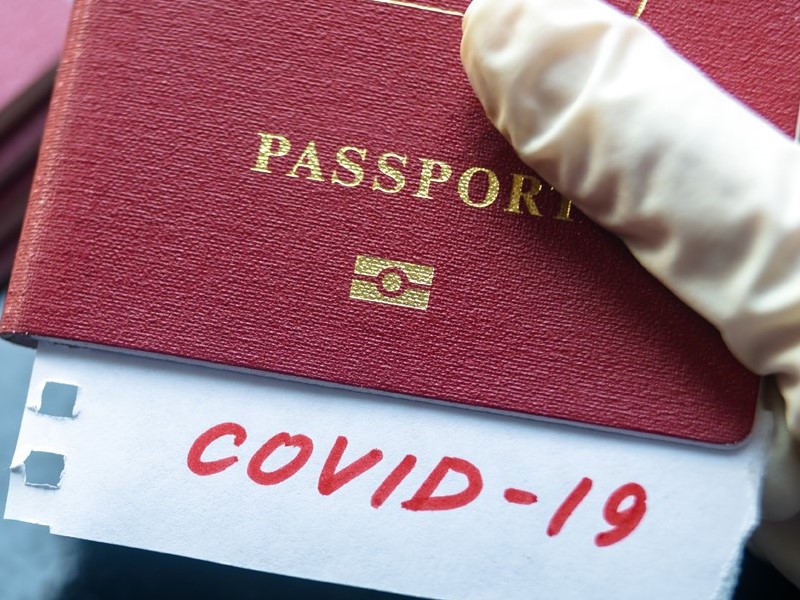 PASSPORT
COVID-19